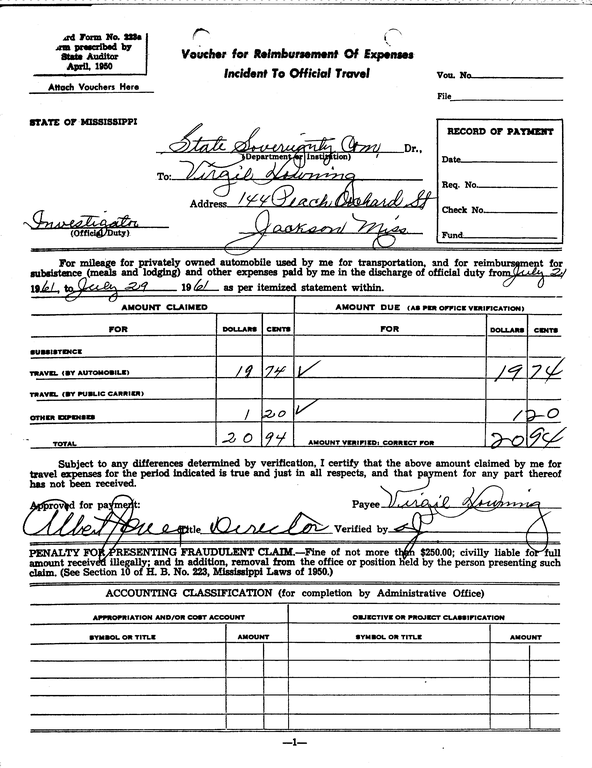 rd Form No. 223a
rm prescribed by
State Auditor
April, 1950
Attach Vouchers Here
Voucher for Reimbursement Of Expenses
Incident To Official Travel
Vou. No.
File
STATE OF MISSISSIPPI
State Sovereignty Com, Dr.,
(Department or Institution)
To: Virgil Downing
Address 144 Peach Orchard St
Jackson Miss.
Investigator
(Official Duty)
RECORD OF PAYMENT
Date
Req. No.
Check No.
Fund
For mileage for privately owned automobile used by me for transportation, and for reimbursement for
subsistence (meals and lodging) and other expenses paid by me in the discharge of official duty from July
1961, to July 29 1961 as per itemized statement within.
AMOUNT CLAIMED AMOUNT DUE (AS PER OFFICE VERIFICATION)
FOR DOLLARS CENTS FOR DOLLARS CENTS
SUBSISTENCE
TRAVEL (BY AUTOMOBILE) 19 74 ✓ 19 74
TRAVEL (BY PUBLIC CARRIER)
OTHER EXPENSES 1 20 ✓ 1 20
TOTAL 20 94 AMOUNT VERIFIED; CORRECT FOR 20 94
Subject to any differences determined by verification, I certify that the above amount claimed by me for
travel expenses for the period indicated is true and just in all respects, and that payment for any part thereof
has not been received.
Approved for payment: Payee Virgil Downing
Albert Jones Title Director Verified by
PENALTY FOR PRESENTING FRAUDULENT CLAIM.—Fine of not more than $250.00; civilly liable for full
amount received illegally; and in addition, removal from the office or position held by the person presenting such
claim. (See Section 10 of H. B. No. 223, Mississippi Laws of 1950.)
ACCOUNTING CLASSIFICATION (for completion by Administrative Office)
APPROPRIATION AND/OR COST ACCOUNT OBJECTIVE OR PROJECT CLASSIFICATION
SYMBOL OR TITLE AMOUNT SYMBOL OR TITLE AMOUNT
—1—